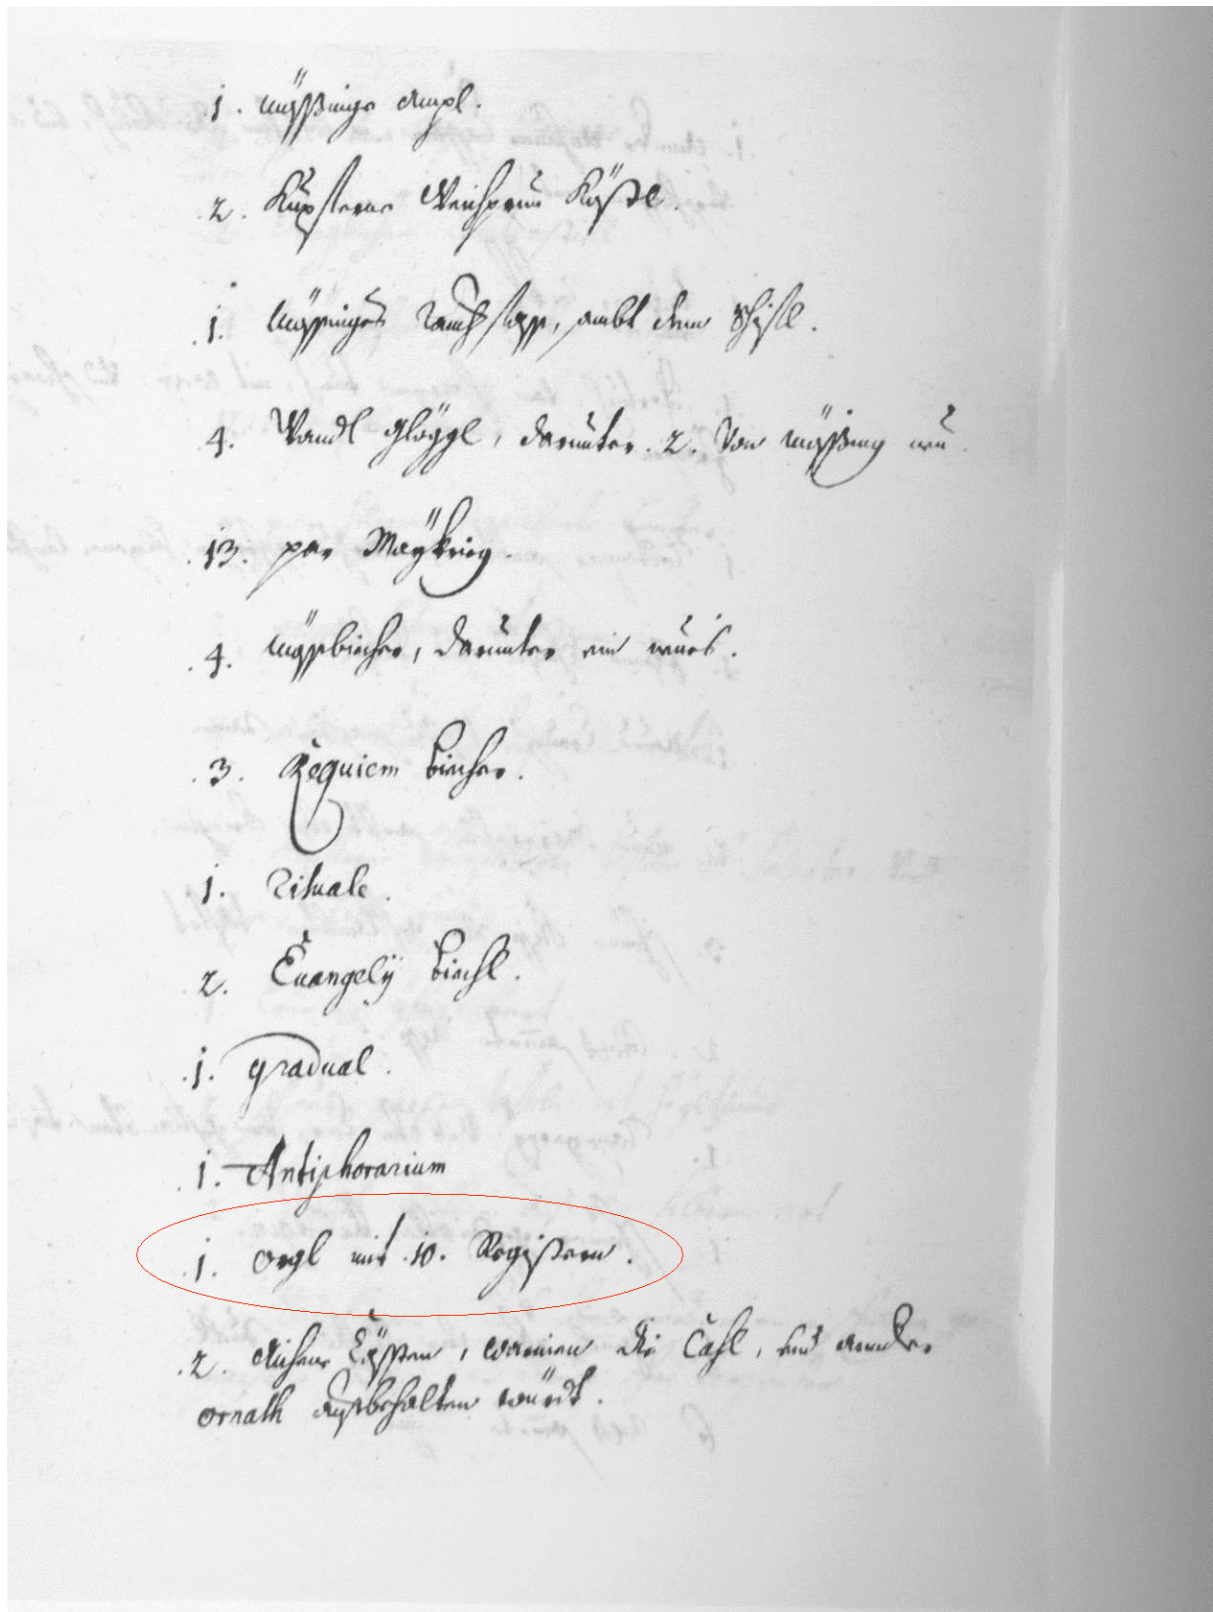 1. mössinge Ampl.
2. Kupferne Weichprun Kößl.
1. mössinges Rauchfass, sambt dem Schifl.
4. Wandl Glöggl, darunter. 2. von mössing neu
13. par Maykrieg.
4. mössbiecher, darunter ein neues.
3. Requiem biecher.
1. Rituale.
2. Euangelÿ biechl.
1. Gradual.
1. Antiphorarium
1. Orgl mit .10. Registern.
2. Aichene Cässten, warinen die Cäsl, und ander
Ornath aufbehalten würdt.